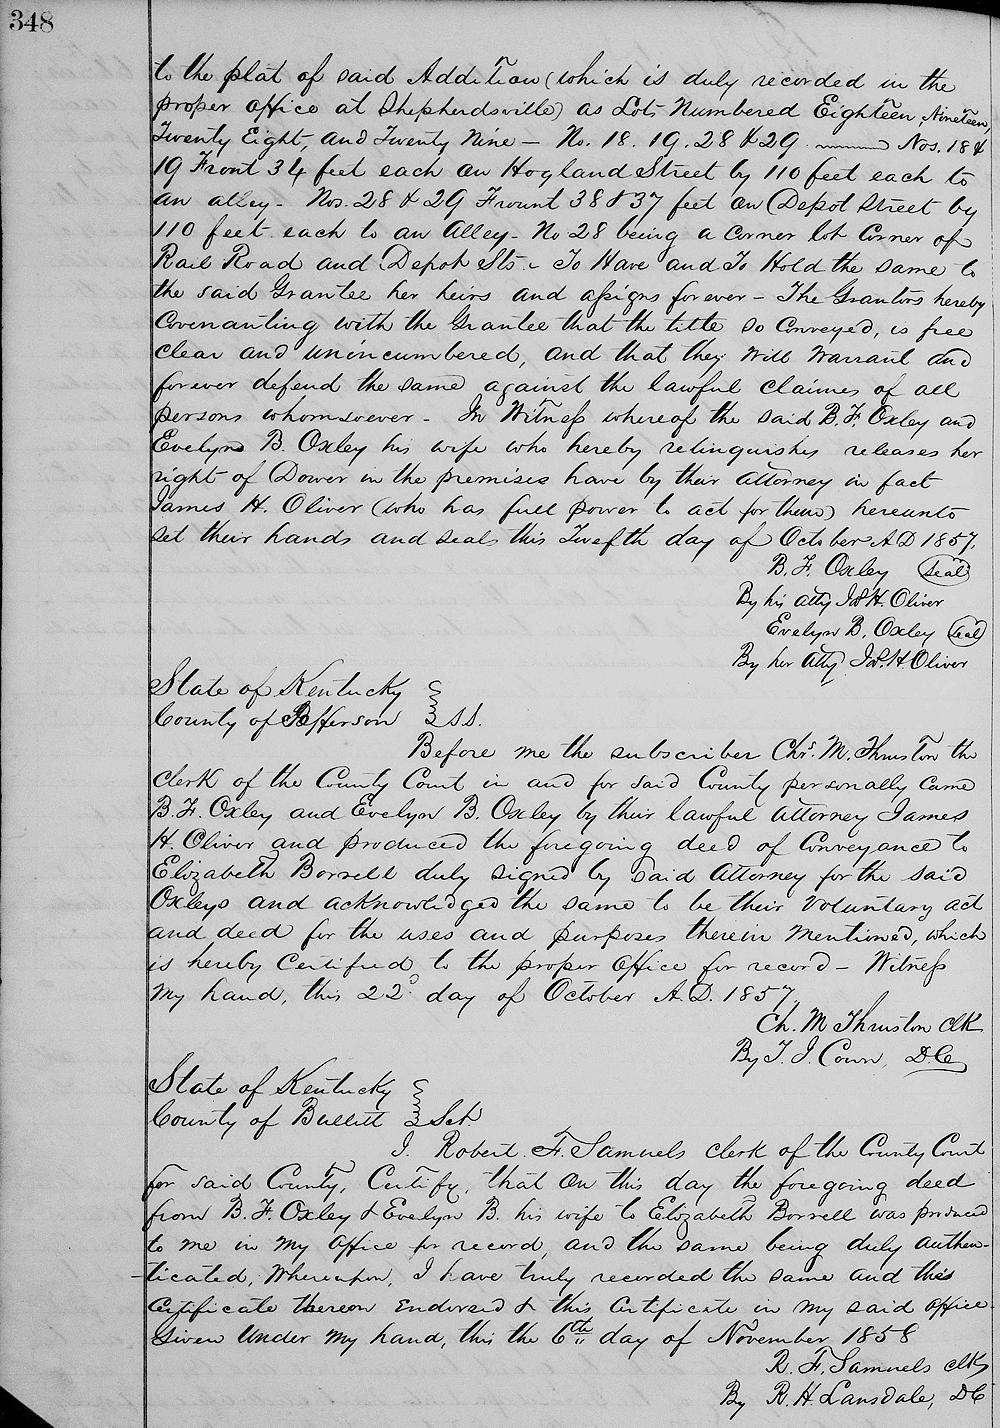 348
to the plat of said Addition (which is duly recorded in the
proper office at Shepherdsville) as Lots Numbered Eighteen, Nineteen,
Twenty Eight, and Twenty Nine — No. 18. 19. 28 & 29 —— Nos. 18 &
19 Front 34 feet each on Hogland Street by 110 feet each to
an alley - Nos. 28 & 29 Frount 38 & 37 feet on Depot Street by
110 feet each to an Alley - No 28 being a Corner lot Corner of
Rail Road and Depot Sts - To Have and To Hold the same to
the said Grantee her heirs and assigns forever - The Grantors hereby
Covenanting with the Grantee that the title so Conveyed, is free
clear and unincumbered, and that they Will Warrant and
forever defend the same against the lawful claimes of all
persons whomsoever - In Witness whereof the said B. F. Oxley and
Evelyn B. Oxley his wife who hereby relinquishes releases her
right of Dower in the premises have by their attorney in fact
James H. Oliver (who has full power to act for them) hereunto
set their hands and seals this Twelfth day of October A.D 1857,
B. F. Oxley (Seal)
By his atty Jas. H. Oliver
Evelyn B. Oxley (Seal)
By her atty Jas. H Oliver
State of Kentucky }
County of Jefferson } S.S.
Before me the subscriber Chs. M. Thruston the
clerk of the County Court in and for said County personally came
B. F. Oxley and Evelyn B. Oxley by their lawful attorney James
H. Oliver and produced the foregoing deed of Conveyance to
Elizabeth Borrell duly signed by said Attorney for the said
Oxleys and acknowledged the same to be their Voluntary act
and deed for the uses and purposes therein Mentioned, which
is hereby Certified to the proper Office for record - Witness
My hand, this 22d day of October A.D. 1857.
Ch. M Thruston clk
By T. J. Conn, D.C.
State of Kentucky }
County of Bullitt } Sct.
I. Robert. F. Samuels clerk of the County Court
for said County, Certify, that on this day the foregoing deed
from B. F. Oxley & Evelyn B. his wife to Elizabeth Borrell was produced
to me in my office for record, and the same being duly authen-
ticated, Whereupon, I have truly recorded the same and this
Certificate thereon Endorsed & this Certificate in my said office
Given Under My hand, this the 6th day of November 1858
R. F. Samuels clk
By R. H. Lansdale, DC